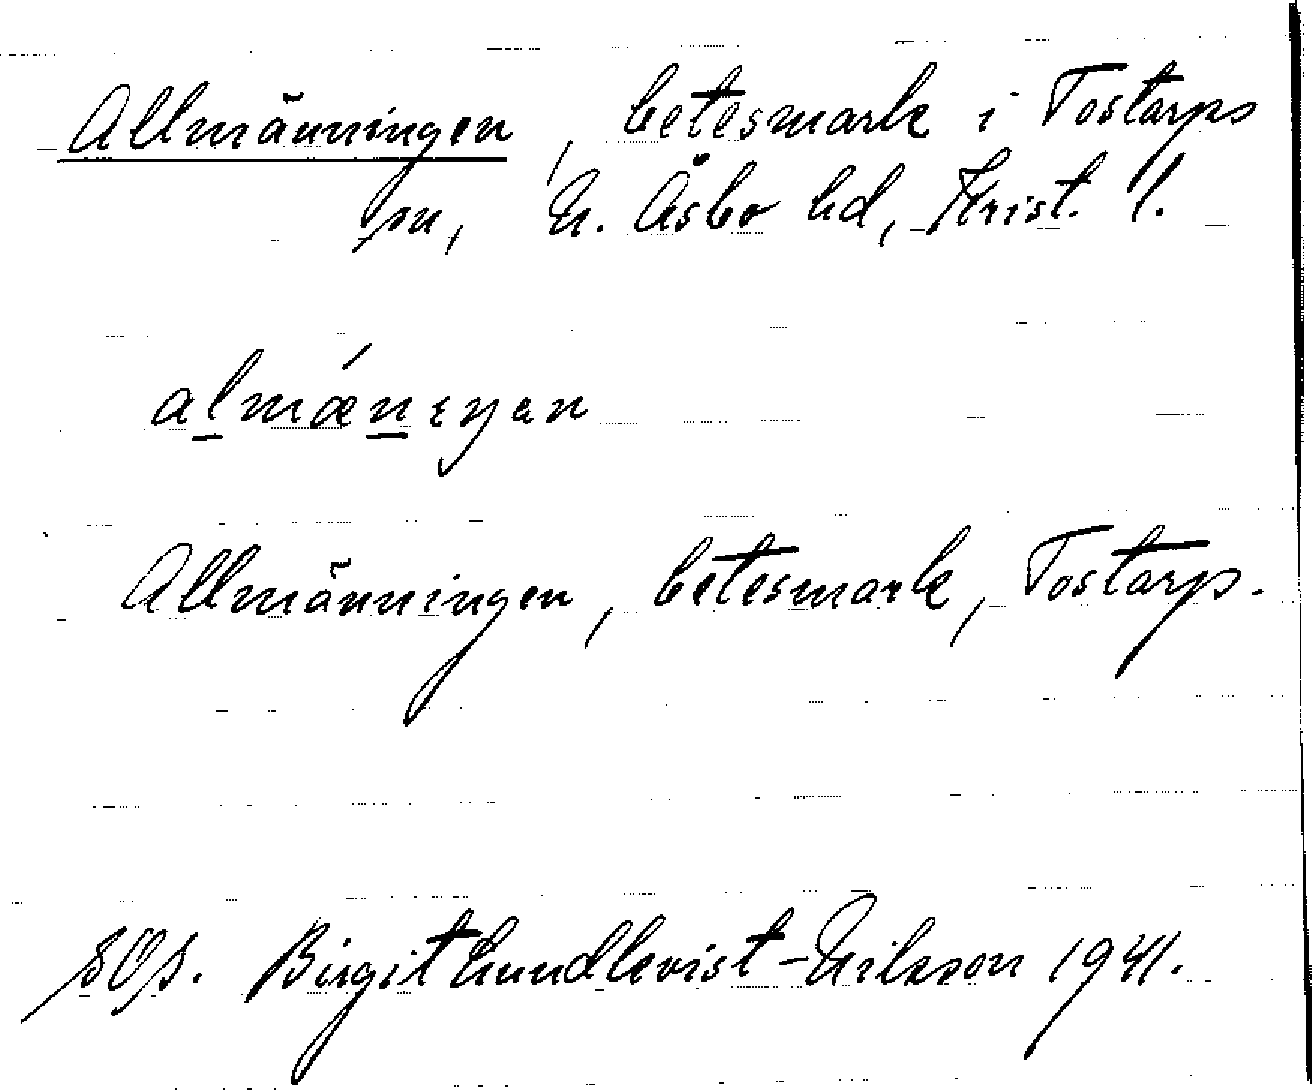 Allmänningen, betesmark i Tostarps
sn, N. Åsbo hd, Krist. l.
Allmänningen, betesmark, Tostarp.
Birgit Lundkvist-Nilsson 1941.